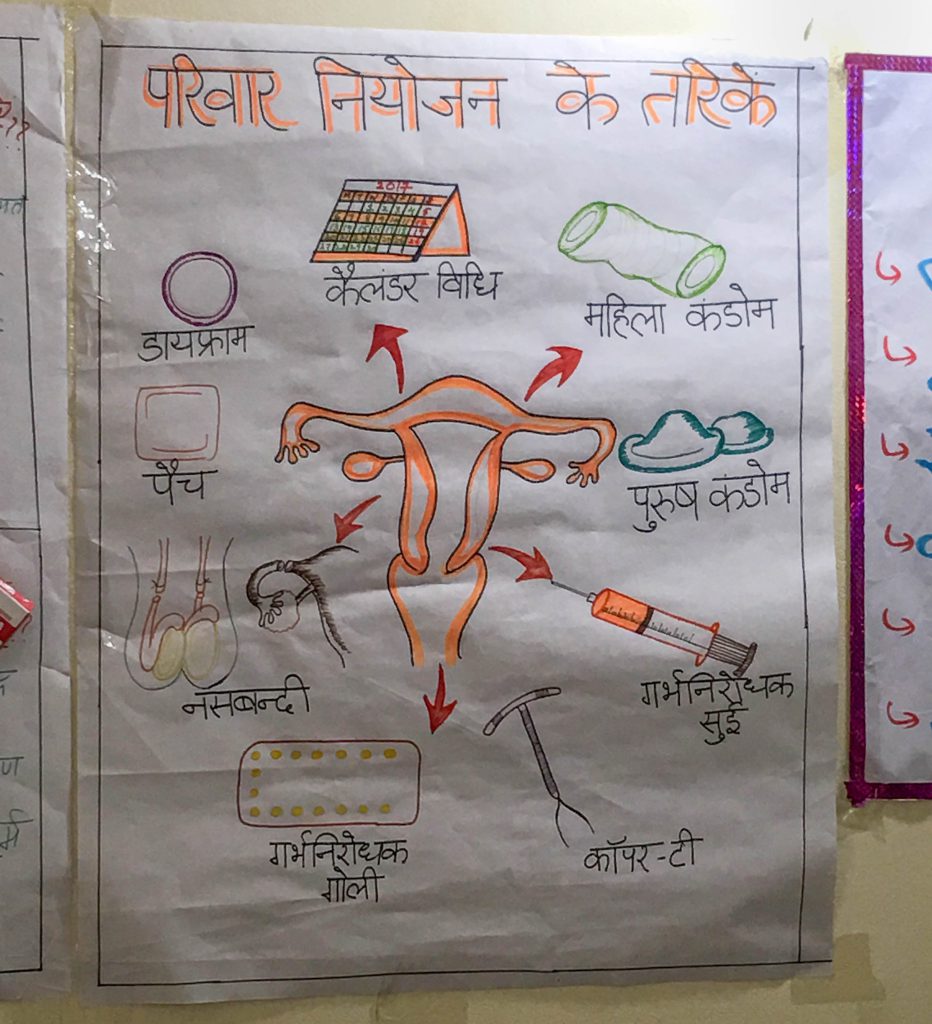 परिवार नियोजन के तरिके
2017
कैलंडर विधि
महिला कंडोम
डायफ्राम
पैच
पुरुष कंडोम
नसबन्दी
गर्भनिरोधक
सुई
गर्भनिरोधक
गोली
कॉपर-टी